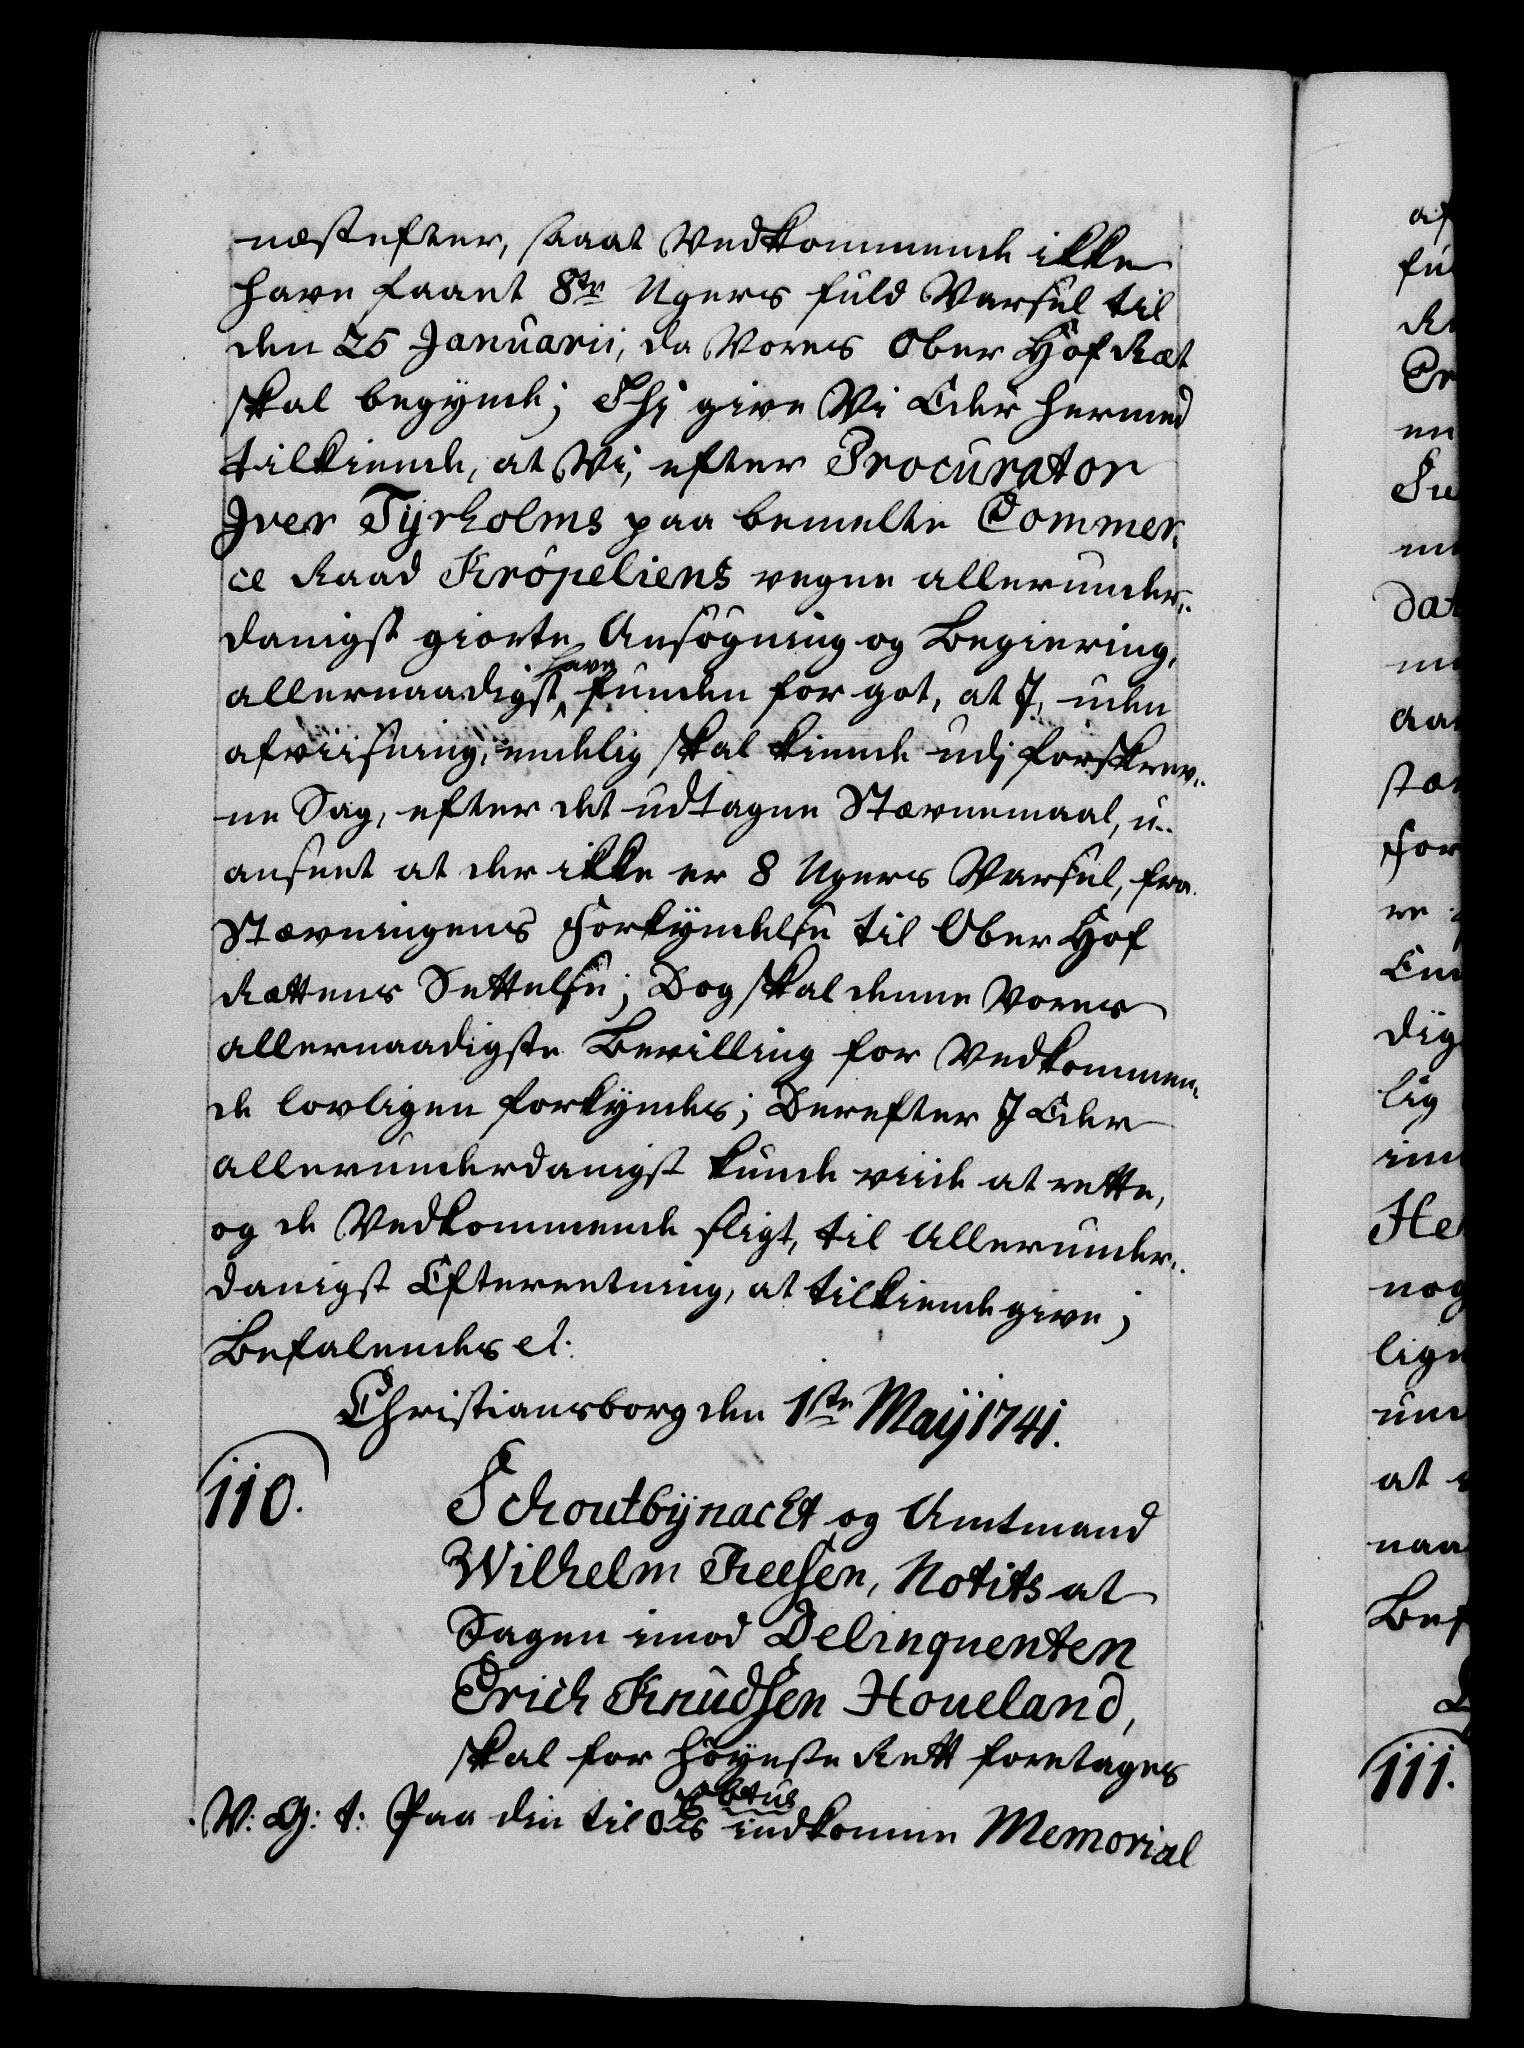 næstefter, saaat Vedkommende ikke
have faaet 8te Ugers fuld Varsel til
den 25 Januarii, da Vores Ober Hof Ræt
skal begynde; Thi give Vi Eder hermed
tilkiende, at Vi, efter Procurator
Iver Tyrholms paa bemelte Commer,
ce Raad Kröpeliens vegne allerunder„
danigst giorte Ansögning og Begiering,
allernaadigst have funden for got, at I, uden
afviisning, endelig skal kiende udj forskrev„
ne Sag, efter det udtagne Stævnemaal, u„
anseet at der ikke er 8 Ugers Varsel, fra
Stævningens Forkyndelse til Ober Hof
Rættens Settelse; Dog skal denne Vores
allernaadigste Bevilling for Vedkommen„
de lovligen forkyndes; Derefter I Eder
allerunderdanigst kunde viide at rette,
og de Vedkommende sligt, til Allerunder„
danigst Efterretning, at tilkiende give;
Befalendes et.
Christiansborg den 1ste Maij 1741.
110.
Schoutbynacht og Amtmand
Wilhelm Reesen, Notits at
Sagen imod Delinquenten
Erich Knudsen Houeland,
skal for Höyeste Rett foretages
V: G: t: Paa din til Os indkomne Memorial
af
Er
en
dat
aar
for
dig
lig
He
nog
at
naa
Bef
111.